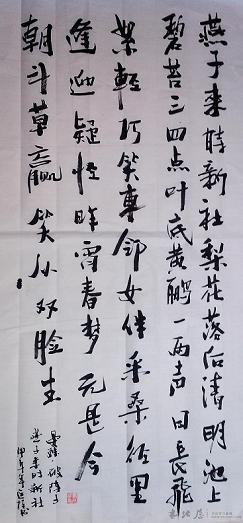 燕子来時新社梨花落后清明池上
碧苔三四点叶底黄鹂一两声日长飞
絮轻巧笑東邻女伴采桑径里
逢迎疑怪昨宵春梦元是今
朝斗草赢笑从双脸生
晏殊破阵子
燕子来时新社